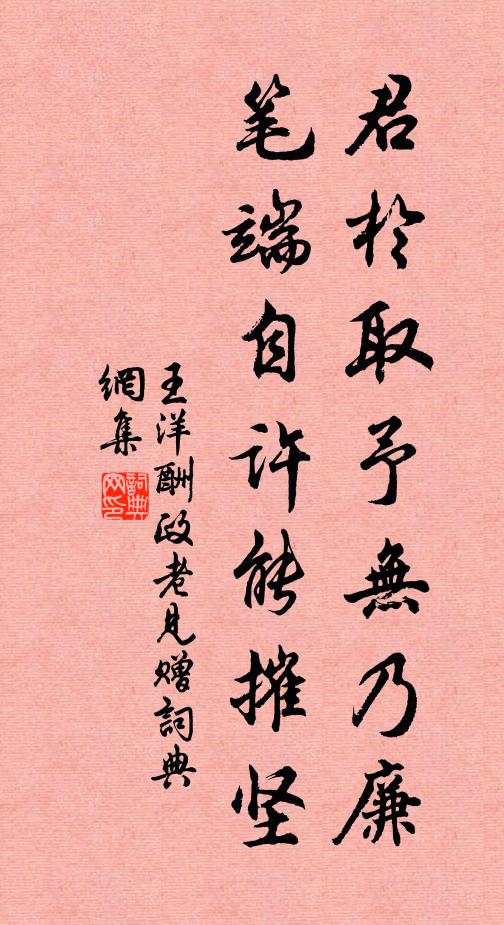 君於取予無乃廉
笔端自许能摧坚
王洋酬政老見赠詞典
網集
詞典
网印